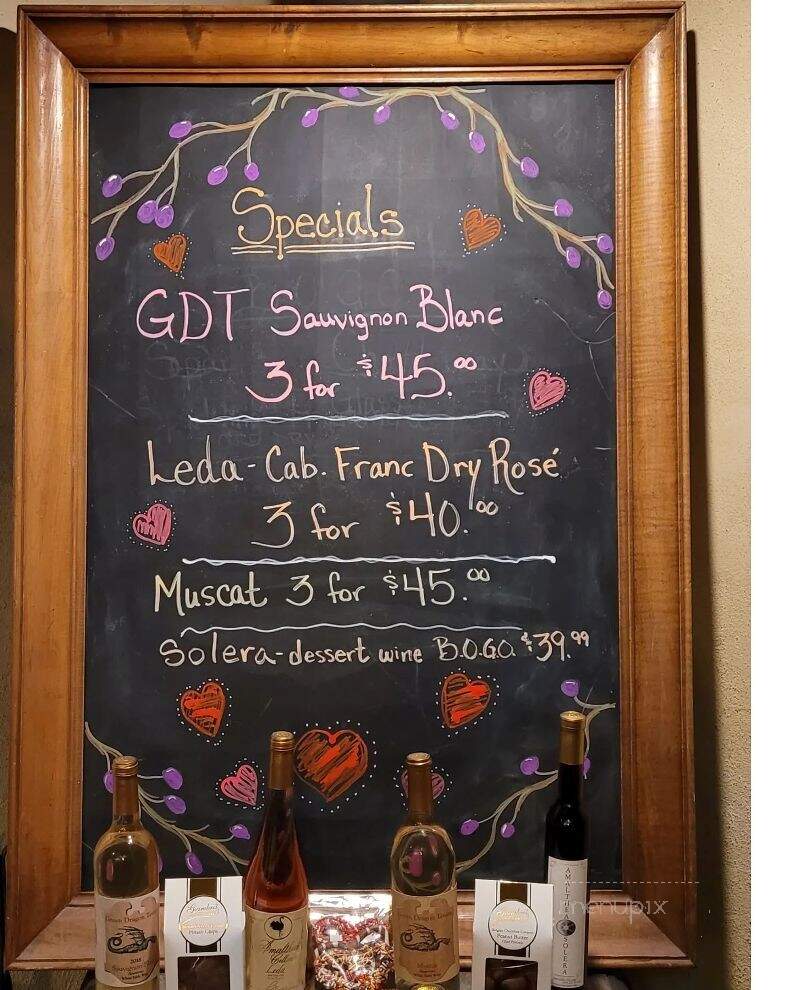 Specials
GDT Sauvignon Blanc
3 for $45.00
Leda - Cab. Franc Dry Rosé
3 for $40.00
Muscat 3 for $45.00
Solera - dessert wine B.O.G.O. $39.99
Green Dragon Tavern
2018
Sauvignon Blanc
Amalthea
Cellars
Leda
Green Dragon Tavern
Peanut Butter
AMALTHEA
SOLERA
menupix